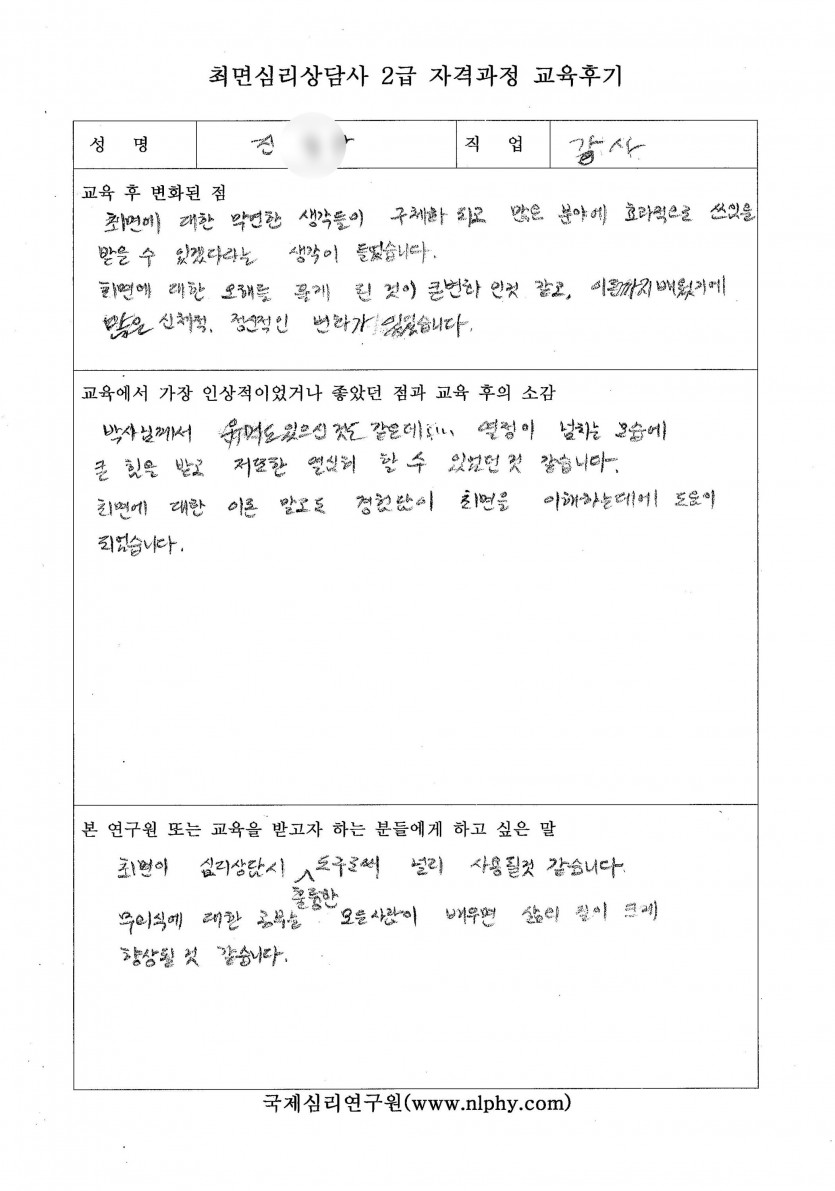 최면심리상담사 2급 자격과정 교육후기
성 명 전 직 업 강사
교육 후 변화된 점
최면에 대한 막연한 생각들이 구체화 되고 많은 분야에 효과적으로 쓰임을
받을 수 있겠다라는 생각이 들었습니다.
최면에 대한 오해를 풀게 된 것이 큰변화 인것 같고, 이론까지배웠기에
많은 신체적, 정신적인 변화가 있었습니다.
교육에서 가장 인상적이었거나 좋았던 점과 교육 후의 소감
박사님께서 있으신 것도 같은데 열정이 넘치는 모습에
큰 힘을 받고 저또한 열심히 할 수 있었던 것 같습니다.
최면에 대한 이론 말고도 경험담이 최면을 이해하는데에 도움이
되었습니다.
본 연구원 또는 교육을 받고자 하는 분들에게 하고 싶은 말
최면이 심리상담시 훌륭한 도구로써 널리 사용될것 같습니다.
무의식에 대한 공부를 모든사람이 배우면 삶의 질이 크게
향상될 것 같습니다.
국제심리연구원(www.nlphy.com)